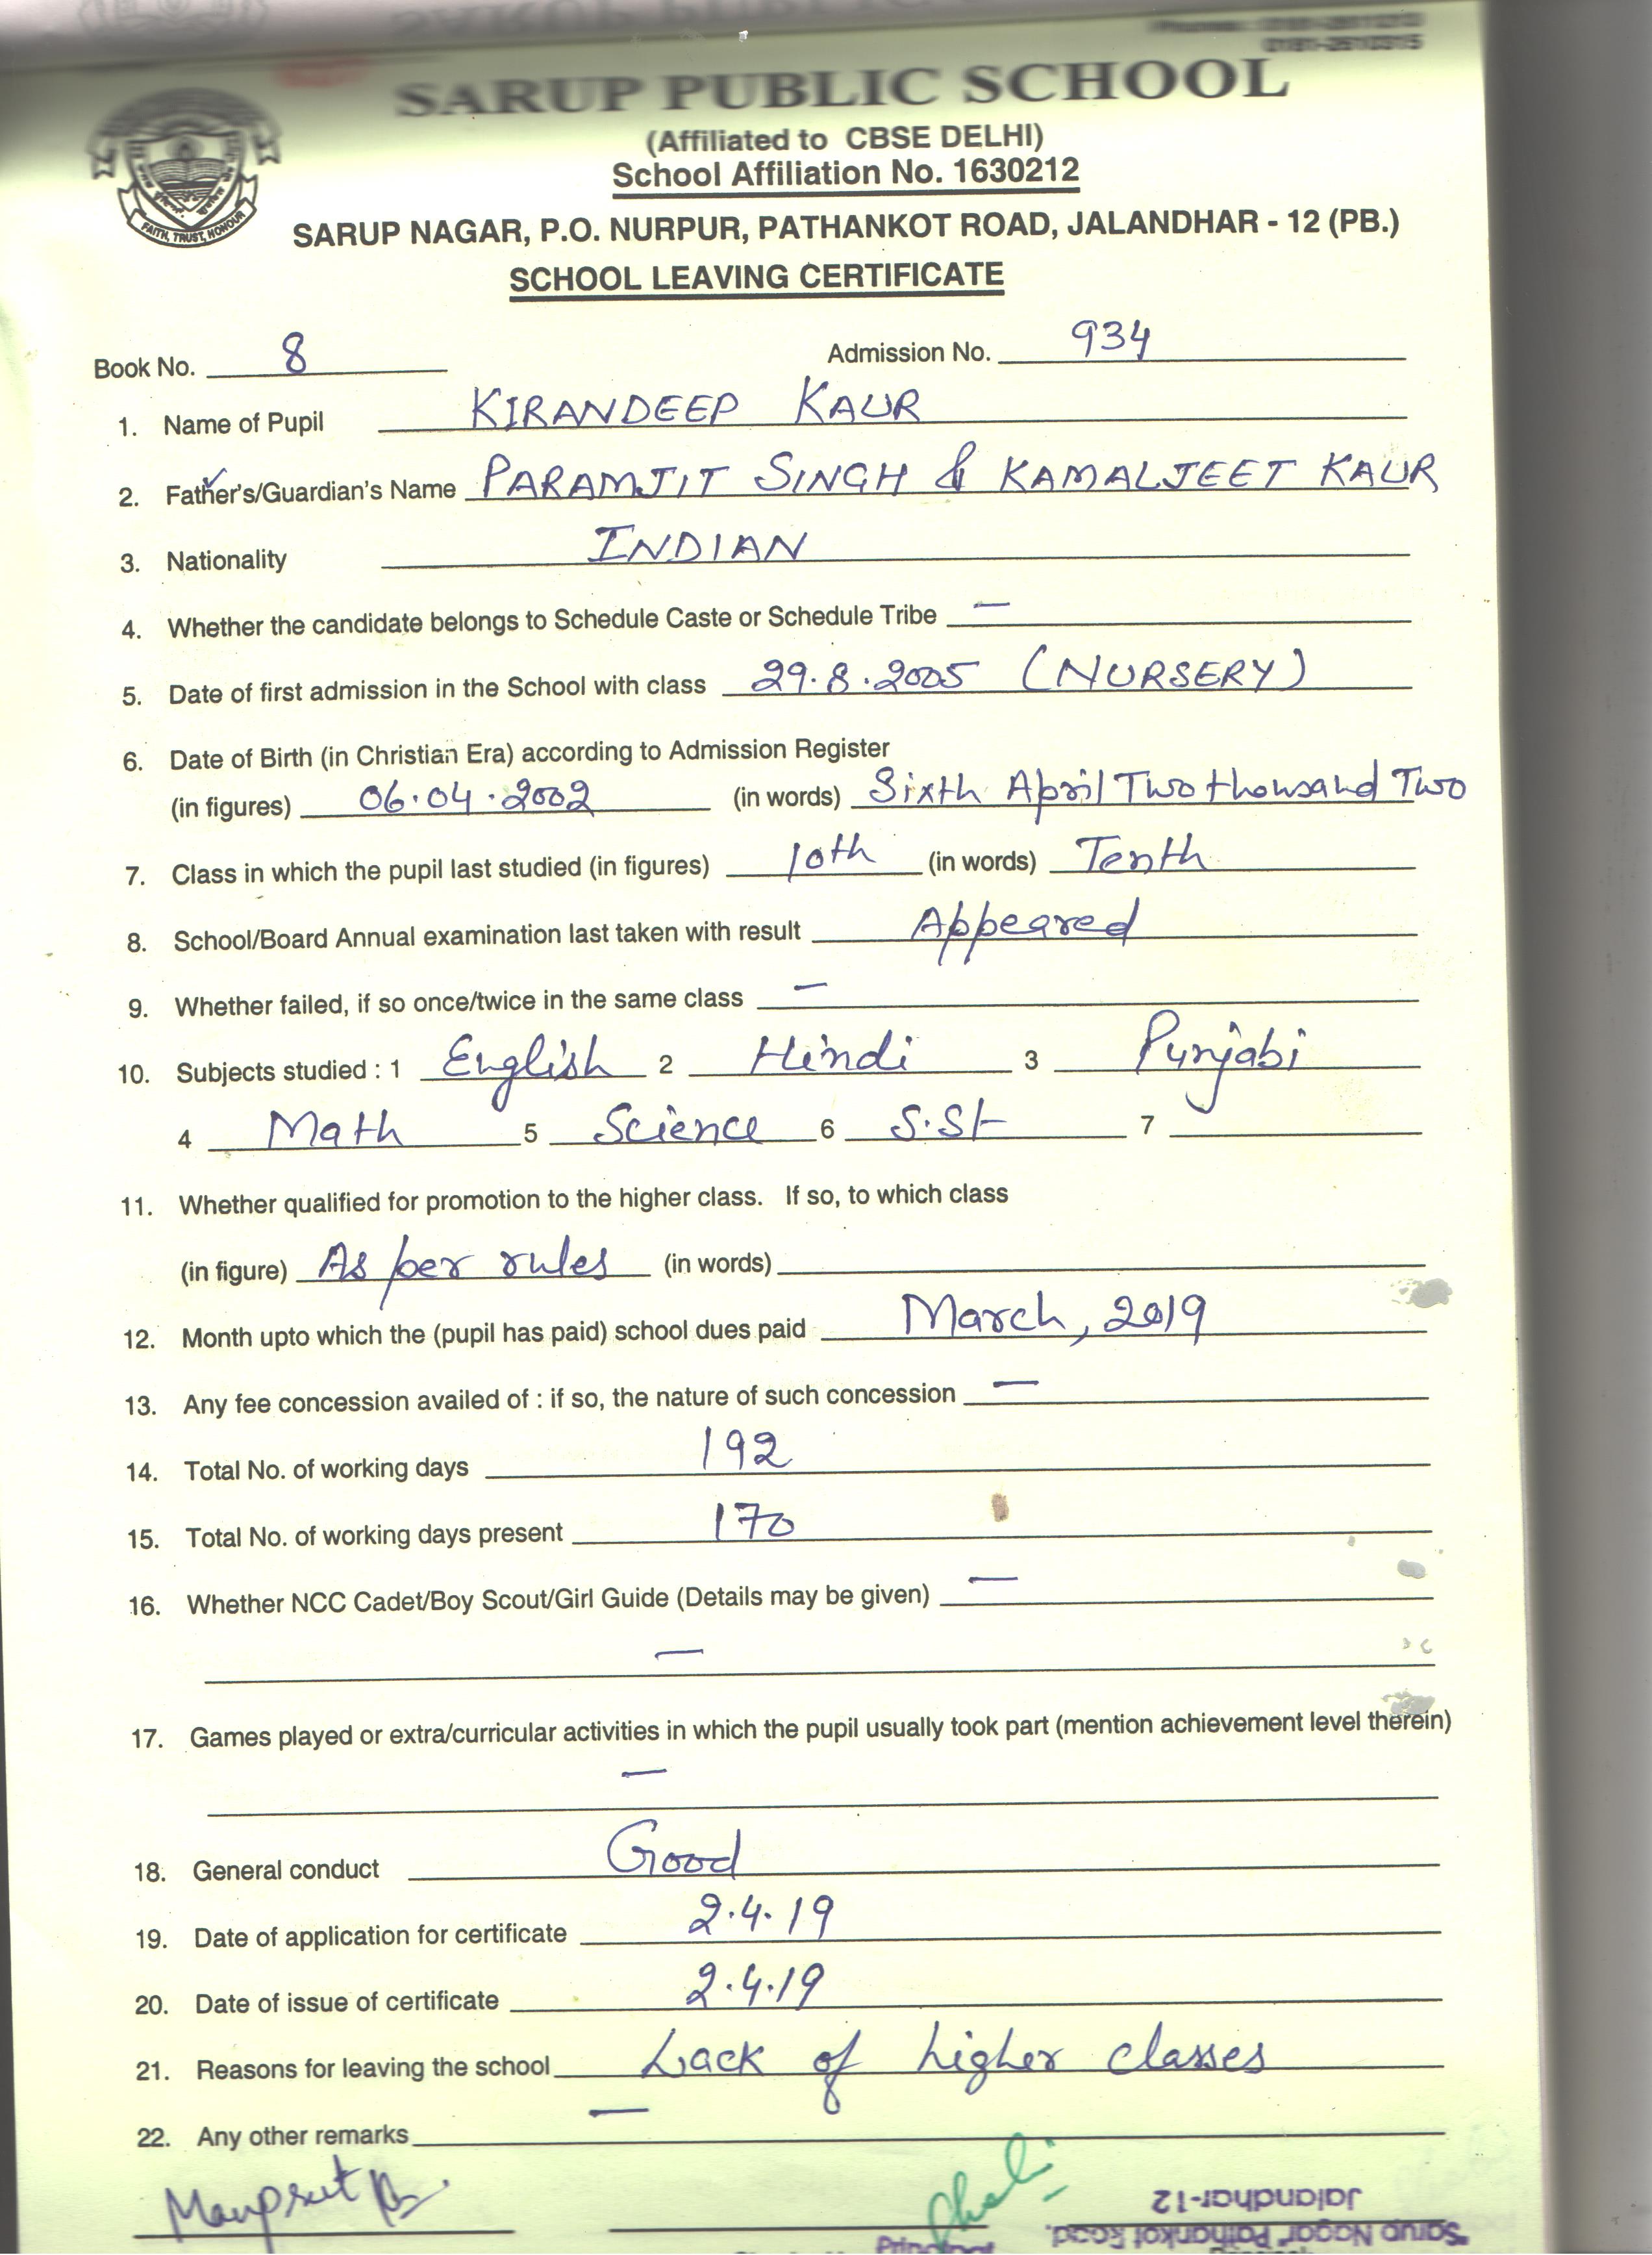 0181-2610315
SARUP PUBLIC SCHOOL
(Affiliated to CBSE DELHI)
School Affiliation No. 1630212
FAITH, TRUST, HONOUR
SARUP NAGAR, P.O. NURPUR, PATHANKOT ROAD, JALANDHAR - 12 (PB.)
SCHOOL LEAVING CERTIFICATE
Book No. 8 Admission No. 934
1. Name of Pupil KIRANDEEP KAUR
2. Father's/Guardian's Name PARAMJIT SINGH & KAMALJEET KAUR
3. Nationality INDIAN
4. Whether the candidate belongs to Schedule Caste or Schedule Tribe —
5. Date of first admission in the School with class 29.8.2005 (NURSERY)
6. Date of Birth (in Christian Era) according to Admission Register
(in figures) 06.04.2002 (in words) Sixth April Two thousand Two
7. Class in which the pupil last studied (in figures) 10th (in words) Tenth
8. School/Board Annual examination last taken with result Appeared
9. Whether failed, if so once/twice in the same class —
10. Subjects studied : 1 English 2 Hindi 3 Punjabi
4 Math 5 Science 6 S.St 7
11. Whether qualified for promotion to the higher class. If so, to which class
(in figure) As per rules (in words)
12. Month upto which the (pupil has paid) school dues paid March, 2019
13. Any fee concession availed of : if so, the nature of such concession —
14. Total No. of working days 192
15. Total No. of working days present 170
16. Whether NCC Cadet/Boy Scout/Girl Guide (Details may be given) —
—
17. Games played or extra/curricular activities in which the pupil usually took part (mention achievement level therein)
—
18. General conduct Good
19. Date of application for certificate 2.4.19
20. Date of issue of certificate 2.4.19
21. Reasons for leaving the school Lack of higher classes
22. Any other remarks —
Manpreet
Jalandhar-12
Principal Sarup Nagar Pathankot Road,